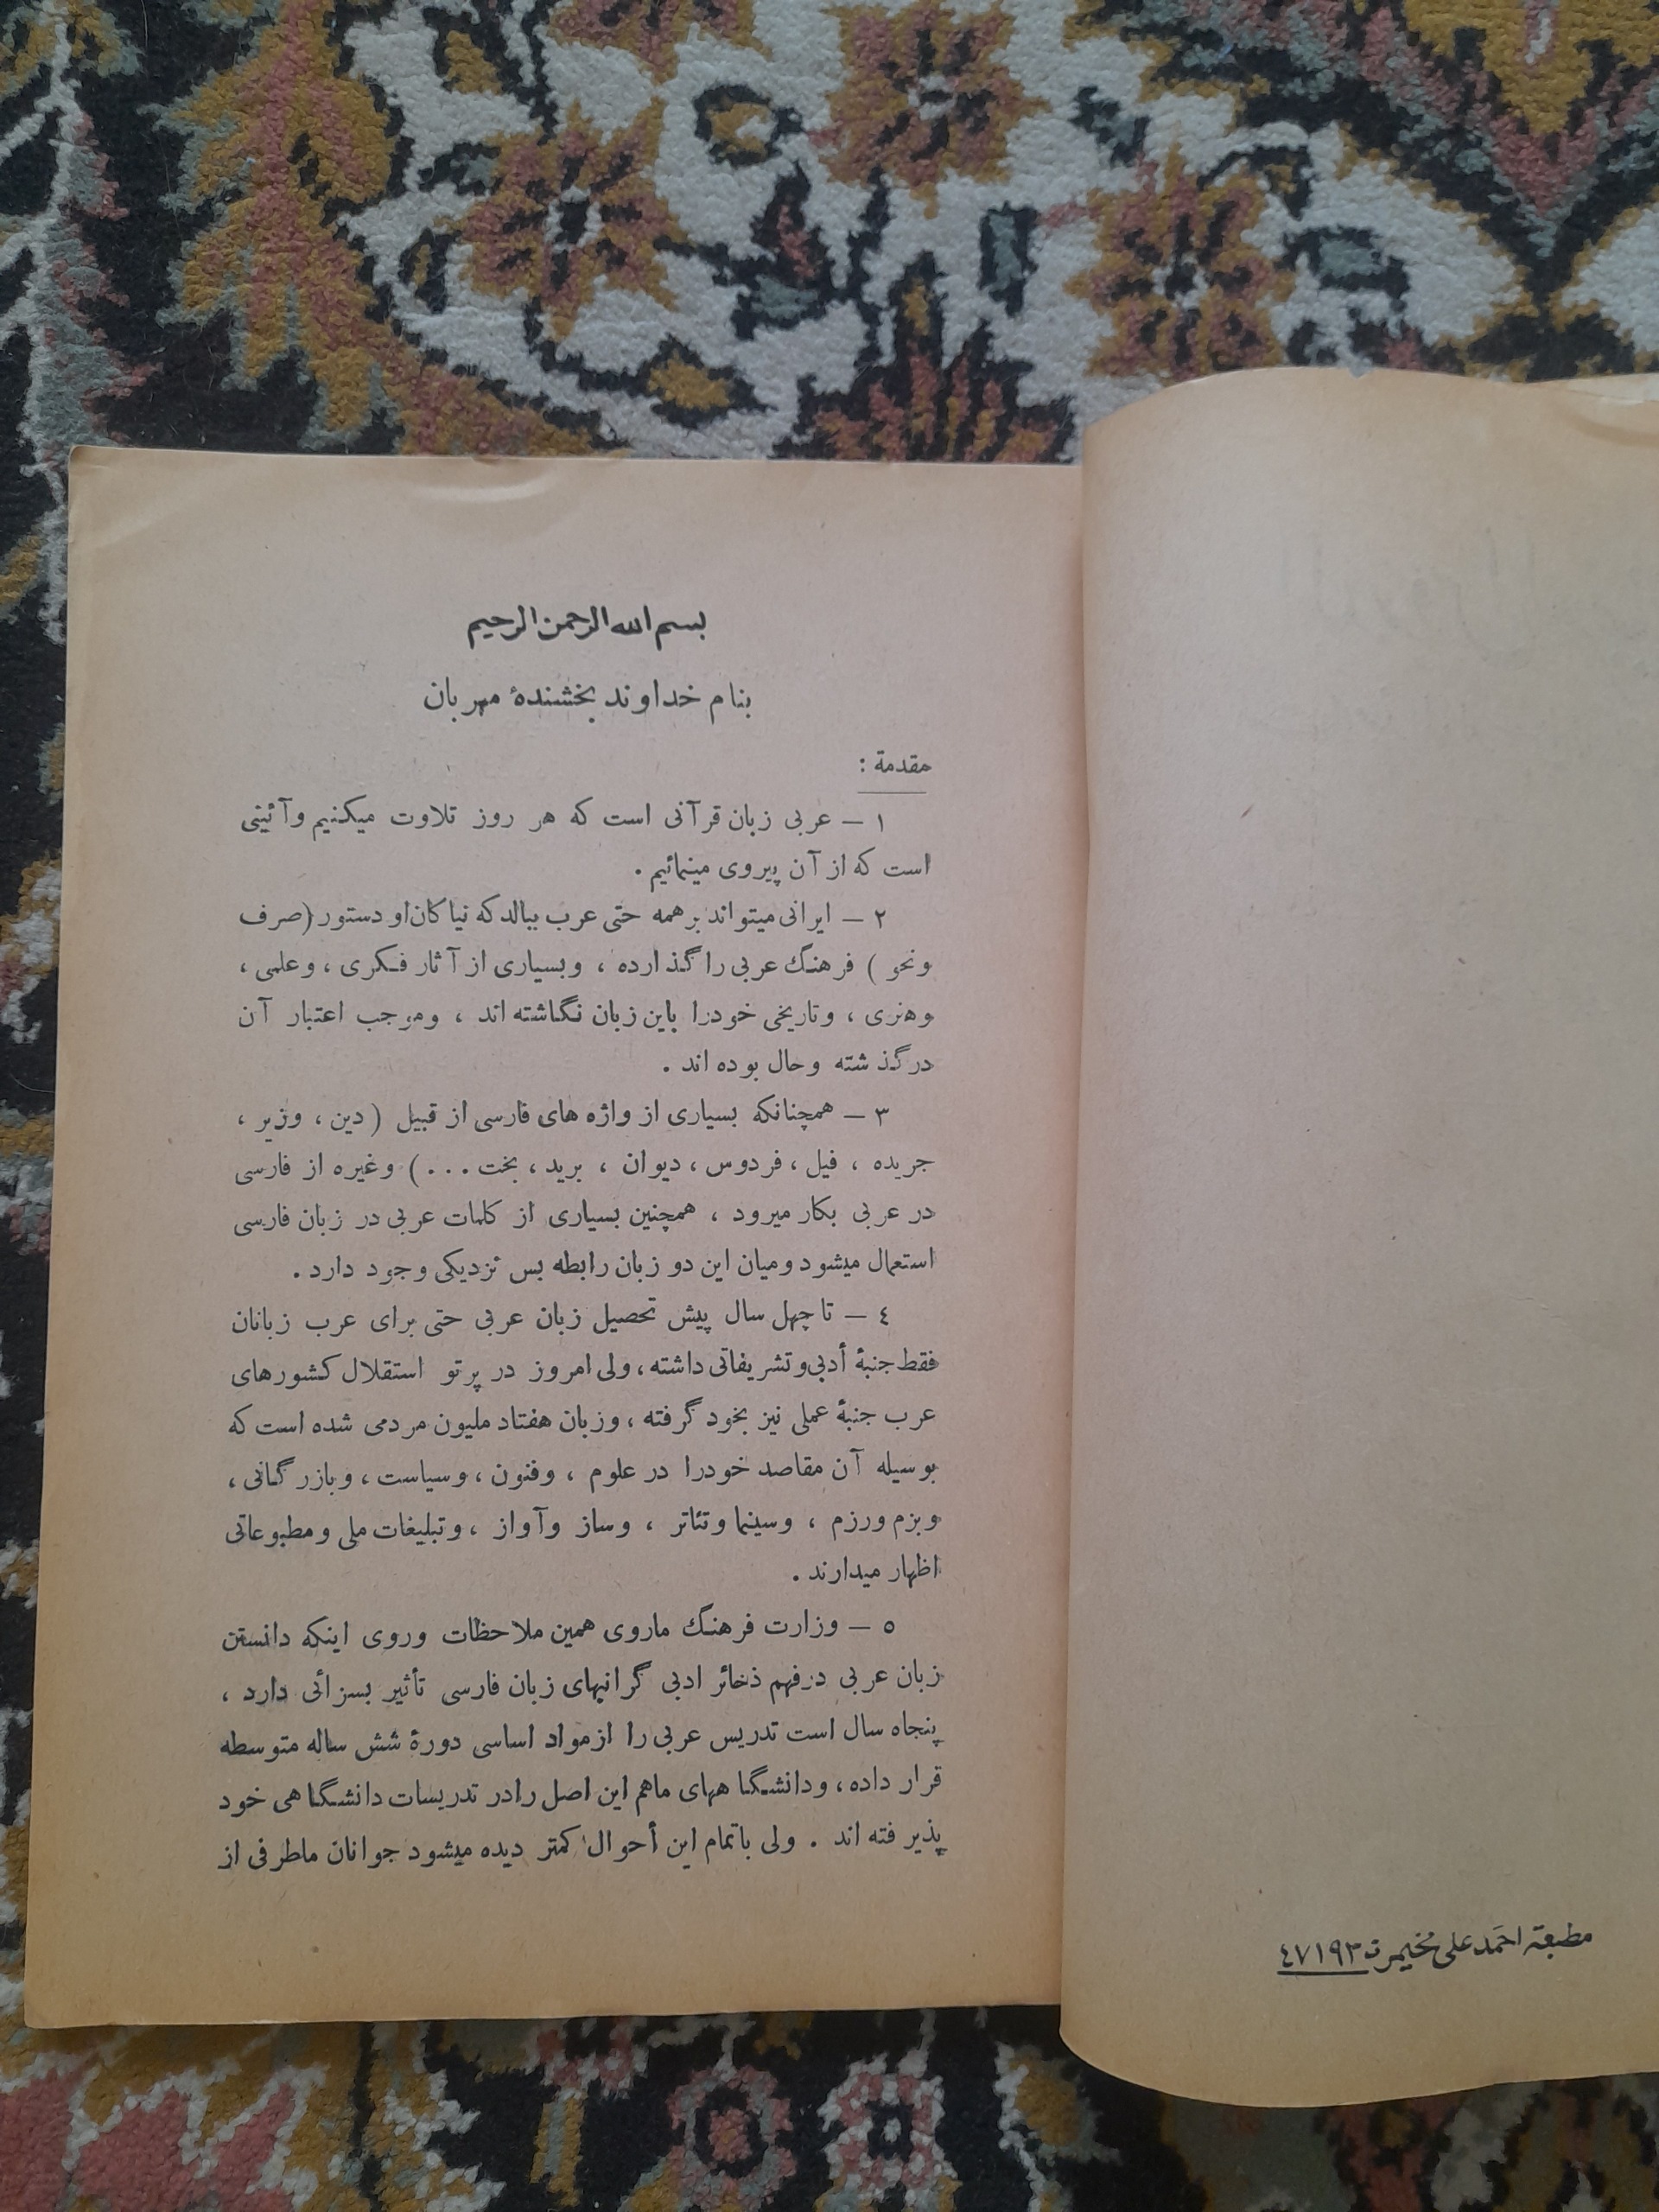 مطبعة احمد علی مخیمر ت ٤٧١٩٣
بسم الله الرحمن الرحیم
بنام خداوند بخشندهٔ مهربان
مقدمة :
١ — عربی زبان قرآنی است که هر روز تلاوت میکنیم وآئینی
است که از آن پیروی مینمائیم .
٢ — ایرانی میتواند برهمه حتی عرب ببالد که نیاکان او دستور (صرف
ونحو ) فرهنگ عربی را گذارده ، وبسیاری از آثار فکری ، وعلمی ،
وهنری ، وتاریخی خودرا باین زبان نگاشته اند ، وموجب اعتبار آن
درگذشته وحال بوده اند .
٣ — همچنانکه بسیاری از واژه های فارسی از قبیل ( دین ، وزیر ،
جریده ، فیل ، فردوس ، دیوان ، برید ، بخت ... ) وغیره از فارسی
در عربی بکار میرود ، همچنین بسیاری از کلمات عربی در زبان فارسی
استعمال میشود ومیان این دو زبان رابطه بس نزدیکی وجود دارد .
٤ — تا چهل سال پیش تحصیل زبان عربی حتی برای عرب زبانان
فقط جنبهٔ أدبی وتشریفاتی داشته ، ولی امروز در پرتو استقلال کشورهای
عرب جنبهٔ عملی نیز بخود گرفته ، وزبان هفتاد ملیون مردمی شده است که
بوسیله آن مقاصد خودرا در علوم ، وفنون ، وسیاست ، وبازرگانی ،
وبزم ورزم ، وسینما وتئاتر ، وساز وآواز ، وتبلیغات ملی ومطبوعاتی
اظهار میدارند .
٥ — وزارت فرهنگ ماروی همین ملاحظات وروی اینکه دانستن
زبان عربی درفهم ذخائر ادبی گرانبهای زبان فارسی تأثیر بسزائی دارد ،
پنجاه سال است تدریس عربی را ازمواد اساسی دورهٔ شش ساله متوسطه
قرار داده ، ودانشگاههای ماهم این اصل رادر تدریسات دانشگاهی خود
پذیرفته اند . ولی باتمام این أحوال کمتر دیده میشود جوانان ماطرفی از